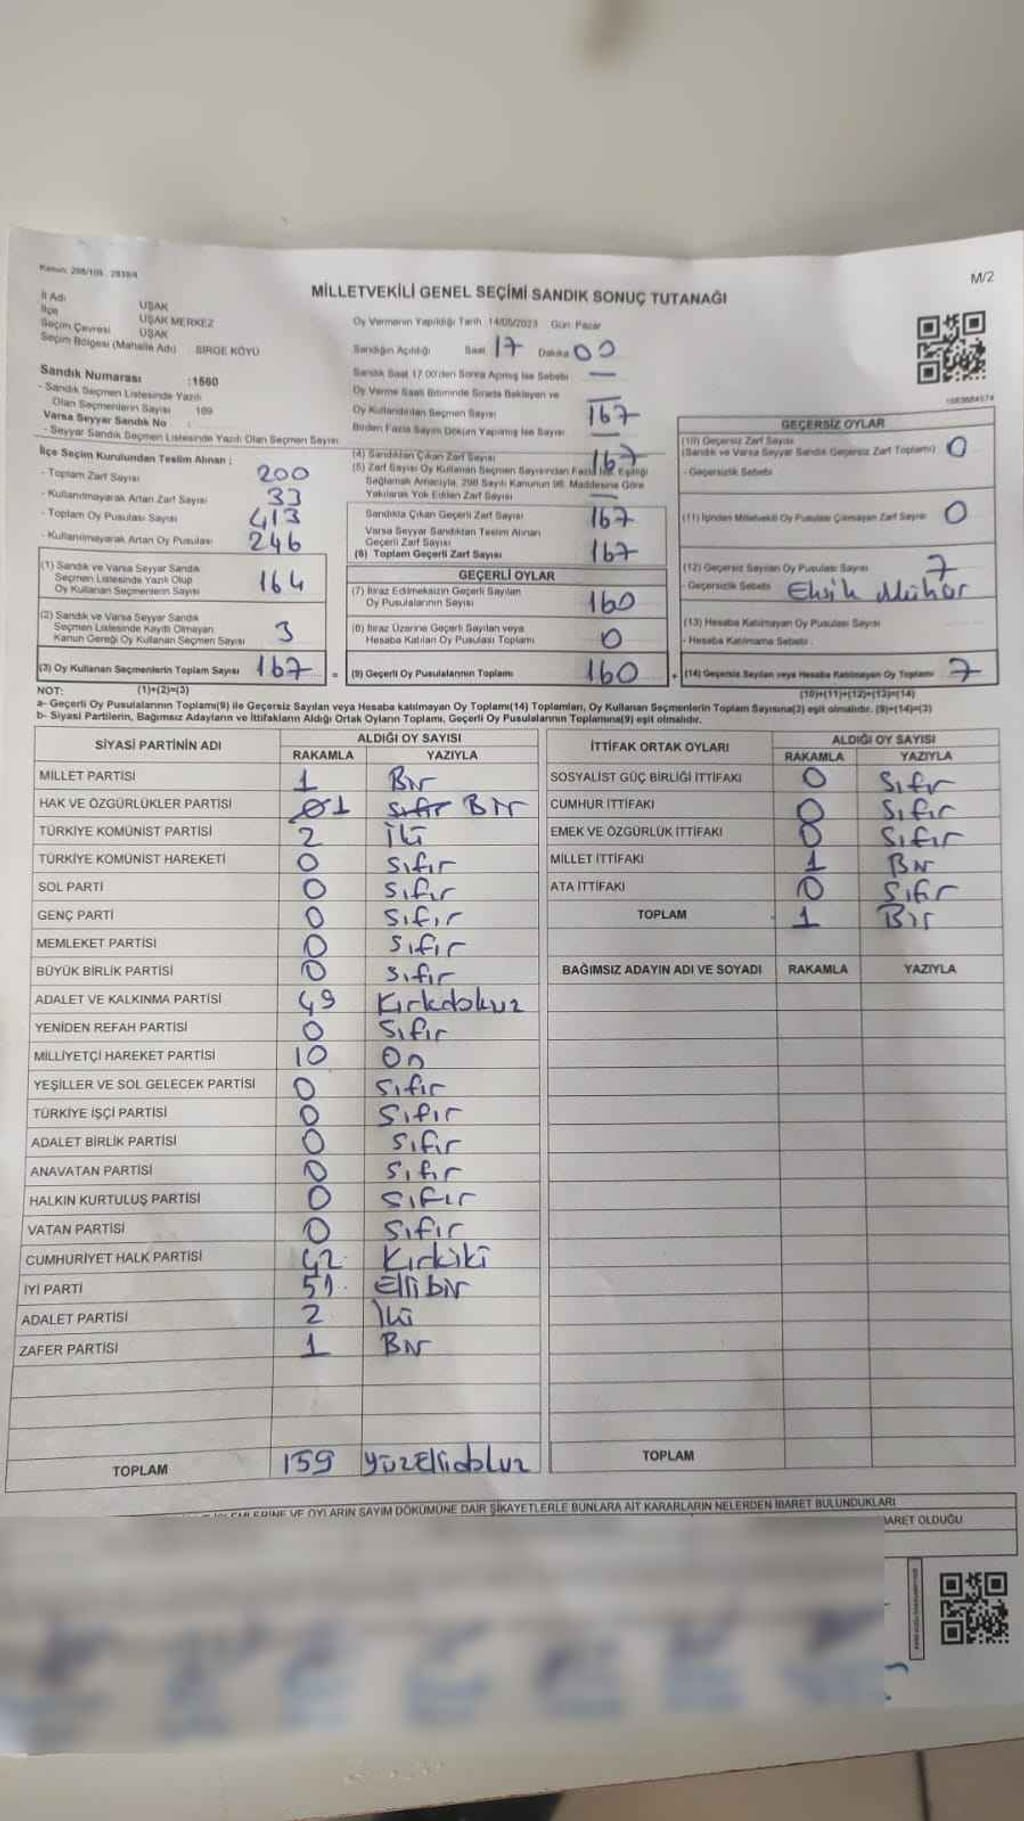 Kanun: 298/105, 2839/4
M/2
MİLLETVEKİLİ GENEL SEÇİMİ SANDIK SONUÇ TUTANAĞI
İl Adı UŞAK
İlçe UŞAK MERKEZ
Seçim Çevresi UŞAK
Seçim Bölgesi (Mahalle Adı) SİRGE KÖYÜ
Sandık Numarası :1560
- Sandık Seçmen Listesinde Yazılı
Olan Seçmenlerin Sayısı 189
Varsa Seyyar Sandık No :
- Seyyar Sandık Seçmen Listesinde Yazılı Olan Seçmen Sayısı
Oy Vermenin Yapıldığı Tarih 14/05/2023 Gün: Pazar
Sandığın Açıldığı Saat 17 Dakika 00
Sandık Saat 17.00'den Sonra Açılmış İse Sebebi —
Oy Verme Saati Bitiminde Sırada Bekleyen ve
Oy Kullandırılan Seçmen Sayısı
167
Birden Fazla Sayım Döküm Yapılmış İse Sayısı —
İlçe Seçim Kurulundan Teslim Alınan :
- Toplam Zarf Sayısı 200
- Kullanılmayarak Artan Zarf Sayısı 33
- Toplam Oy Pusulası Sayısı 413
- Kullanılmayarak Artan Oy Pusulası 246
(1) Sandık ve Varsa Seyyar Sandık
Seçmen Listesinde Yazılı Olup
Oy Kullanan Seçmenlerin Sayısı 164
(2) Sandık ve Varsa Seyyar Sandık
Seçmen Listesinde Kayıtlı Olmayan
Kanun Gereği Oy Kullanan Seçmen Sayısı 3
(3) Oy Kullanan Seçmenlerin Toplam Sayısı 167 =
(4) Sandıktan Çıkan Zarf Sayısı 167
(5) Zarf Sayısı Oy Kullanan Seçmen Sayısından Fazla İse, Eşitliği
Sağlamak Amacıyla, 298 Sayılı Kanunun 98. Maddesine Göre
Yakılarak Yok Edilen Zarf Sayısı —
Sandıkta Çıkan Geçerli Zarf Sayısı 167
Varsa Seyyar Sandıktan Teslim Alınan
Geçerli Zarf Sayısı
(6) Toplam Geçerli Zarf Sayısı 167
GEÇERLİ OYLAR
(7) İtiraz Edilmeksizin Geçerli Sayılan
Oy Pusulalarının Sayısı 160
(8) İtiraz Üzerine Geçerli Sayılan veya
Hesaba Katılan Oy Pusulası Toplamı 0
(9) Geçerli Oy Pusulalarının Toplamı 160 +
GEÇERSİZ OYLAR
(10) Geçersiz Zarf Sayısı
(Sandık ve Varsa Seyyar Sandık Geçersiz Zarf Toplamı) 0
- Geçersizlik Sebebi
(11) İçinden Milletvekili Oy Pusulası Çıkmayan Zarf Sayısı 0
(12) Geçersiz Sayılan Oy Pusulası Sayısı 7
- Geçersizlik Sebebi Eksik Mühür
(13) Hesaba Katılmayan Oy Pusulası Sayısı
- Hesaba Katılmama Sebebi .
(14) Geçersiz Sayılan veya Hesaba Katılmayan Oy Toplamı 7
NOT: (1)+(2)=(3) (10)+(11)+(12)+(13)=(14)
a- Geçerli Oy Pusulalarının Toplamı(9) ile Geçersiz Sayılan veya Hesaba katılmayan Oy Toplamı(14) Toplamları, Oy Kullanan Seçmenlerin Toplam Sayısına(3) eşit olmalıdır. (9)+(14)=(3)
b- Siyasi Partilerin, Bağımsız Adayların ve İttifakların Aldığı Ortak Oyların Toplamı, Geçerli Oy Pusulalarının Toplamına(9) eşit olmalıdır.
SİYASİ PARTİNİN ADI ALDIĞI OY SAYISI
RAKAMLA YAZIYLA
MİLLET PARTİSİ 1 Bir
HAK VE ÖZGÜRLÜKLER PARTİSİ 01 Sıfır Bir
TÜRKİYE KOMÜNİST PARTİSİ 2 İki
TÜRKİYE KOMÜNİST HAREKETİ 0 Sıfır
SOL PARTİ 0 Sıfır
GENÇ PARTİ 0 Sıfır
MEMLEKET PARTİSİ 0 Sıfır
BÜYÜK BİRLİK PARTİSİ 0 Sıfır
ADALET VE KALKINMA PARTİSİ 49 Kırkdokuz
YENİDEN REFAH PARTİSİ 0 Sıfır
MİLLİYETÇİ HAREKET PARTİSİ 10 On
YEŞİLLER VE SOL GELECEK PARTİSİ 0 Sıfır
TÜRKİYE İŞÇİ PARTİSİ 0 Sıfır
ADALET BİRLİK PARTİSİ 0 Sıfır
ANAVATAN PARTİSİ 0 Sıfır
HALKIN KURTULUŞ PARTİSİ 0 Sıfır
VATAN PARTİSİ 0 Sıfır
CUMHURİYET HALK PARTİSİ 42 Kırkiki
İYİ PARTİ 51 Ellibir
ADALET PARTİSİ 2 İki
ZAFER PARTİSİ 1 Bir
TOPLAM 159 Yüzellidokuz
İTTİFAK ORTAK OYLARI ALDIĞI OY SAYISI
RAKAMLA YAZIYLA
SOSYALİST GÜÇ BİRLİĞİ İTTİFAKI 0 Sıfır
CUMHUR İTTİFAKI 0 Sıfır
EMEK VE ÖZGÜRLÜK İTTİFAKI 0 Sıfır
MİLLET İTTİFAKI 1 Bir
ATA İTTİFAKI 0 Sıfır
TOPLAM 1 Bir
BAĞIMSIZ ADAYIN ADI VE SOYADI RAKAMLA YAZIYLA
TOPLAM
VE OYLARIN SAYIM DÖKÜMÜNE DAİR ŞİKAYETLERLE BUNLARA AİT KARARLARIN NELERDEN İBARET BULUNDUKLARI
OLDUĞU